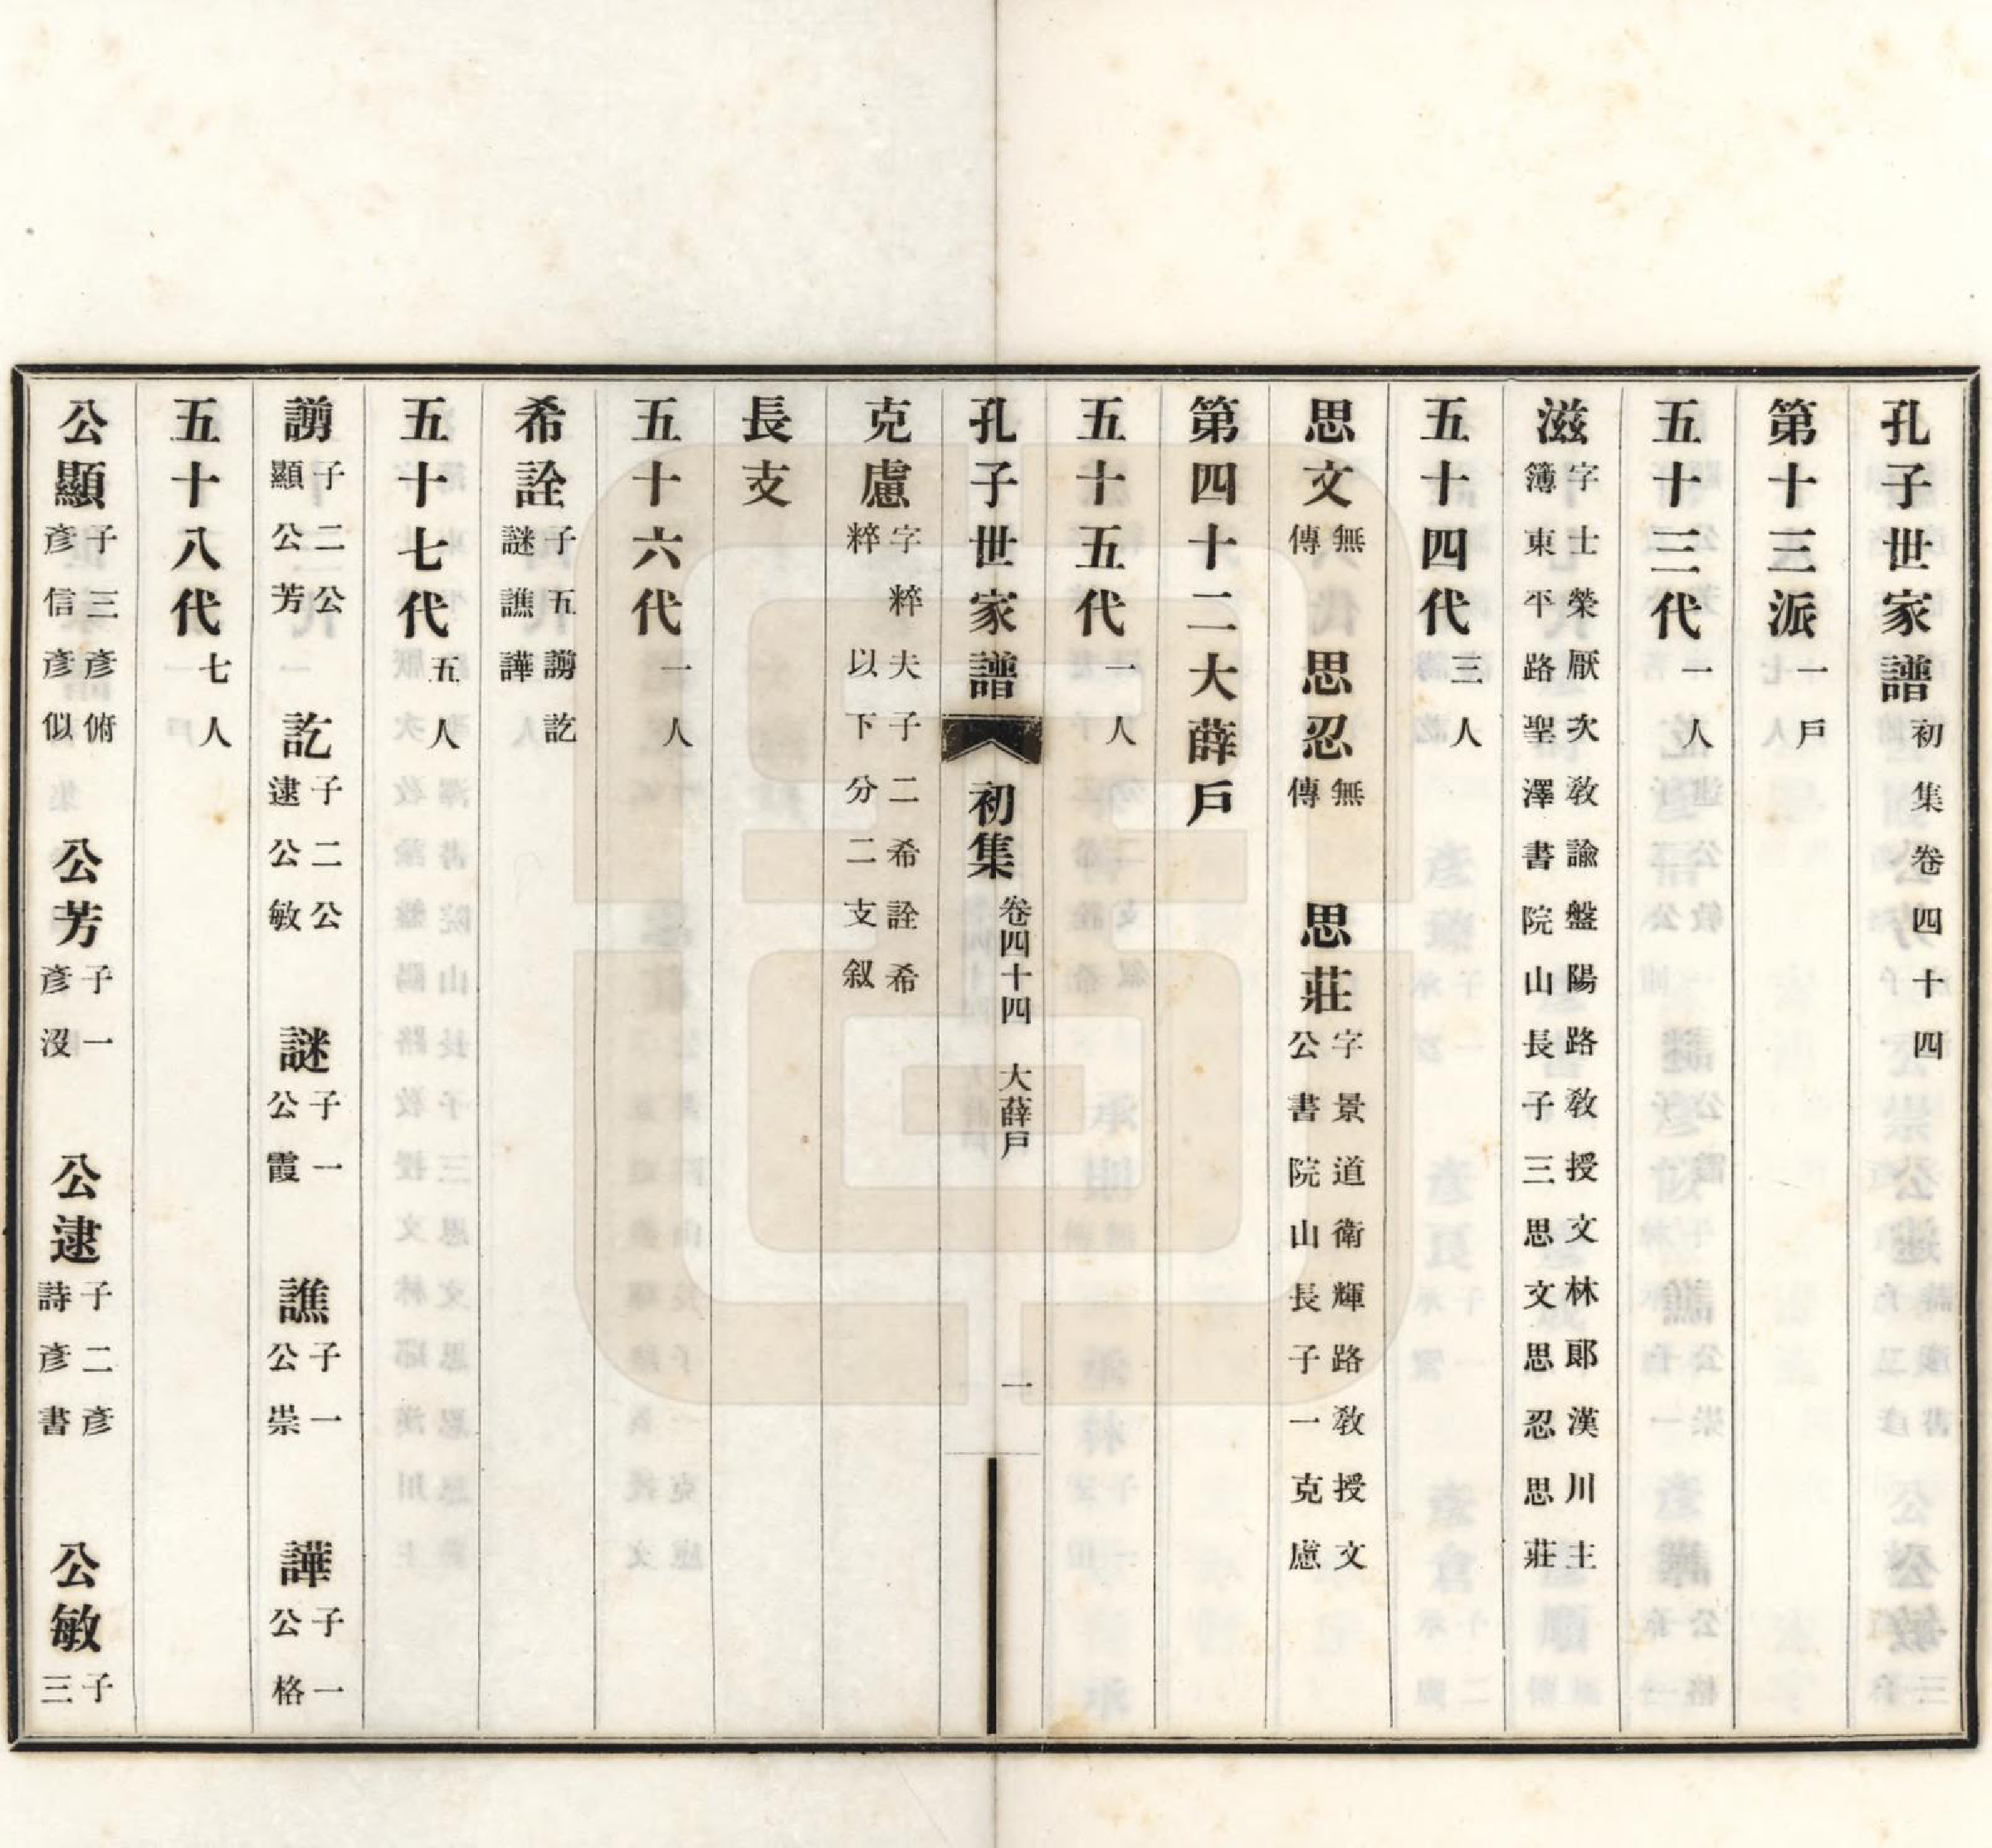 孔子世家譜初集卷四十四
第十三派一戶
五十三代一人
滋字士榮厭次教諭盤陽路教授文林郎漢川主簿東平路聖澤書院山長子三思文思忍思莊
五十四代三人
思文無傳 思忍無傳 思莊字景道衛輝路教授文公書院山長子一克慮
第四十二大薛戶
五十五代一人
孔子世家譜 初集 卷四十四 大薛戶 一
克慮字粹夫子二希詮希粹以下分二支叙
長支
五十六代一人
希詮子五謭訖謎譙譁
五十七代五人
謭子二公顯公芳 訖子二公逮公敏 謎子一公霞 譙子一公崇 譁子一公格
五十八代七人
公顯子三彥俯彥信彥似 公芳子一彥沒 公逮子二彥詩彥書 公敏子三